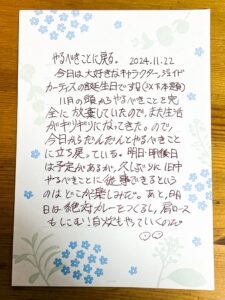 やるべきことに戻る。 2024.11.22
今日は大好きなキャラクター、ジェイド
カーティスの誕生日です(
11月の頭からやるべきことを完
全に放棄していたので、また生活
がギリギリになってきた。ので、
今日からだんだんとやるべきこと
に立ち戻っている。明日・明後日
は予定があるが、久しぶりに1日中
やるべきことに従事できるという
のはどこか楽しみだ。あと、明
日は絶対カレーをつくるし、肩ロース
もにこむ!自炊もやっていくのだ